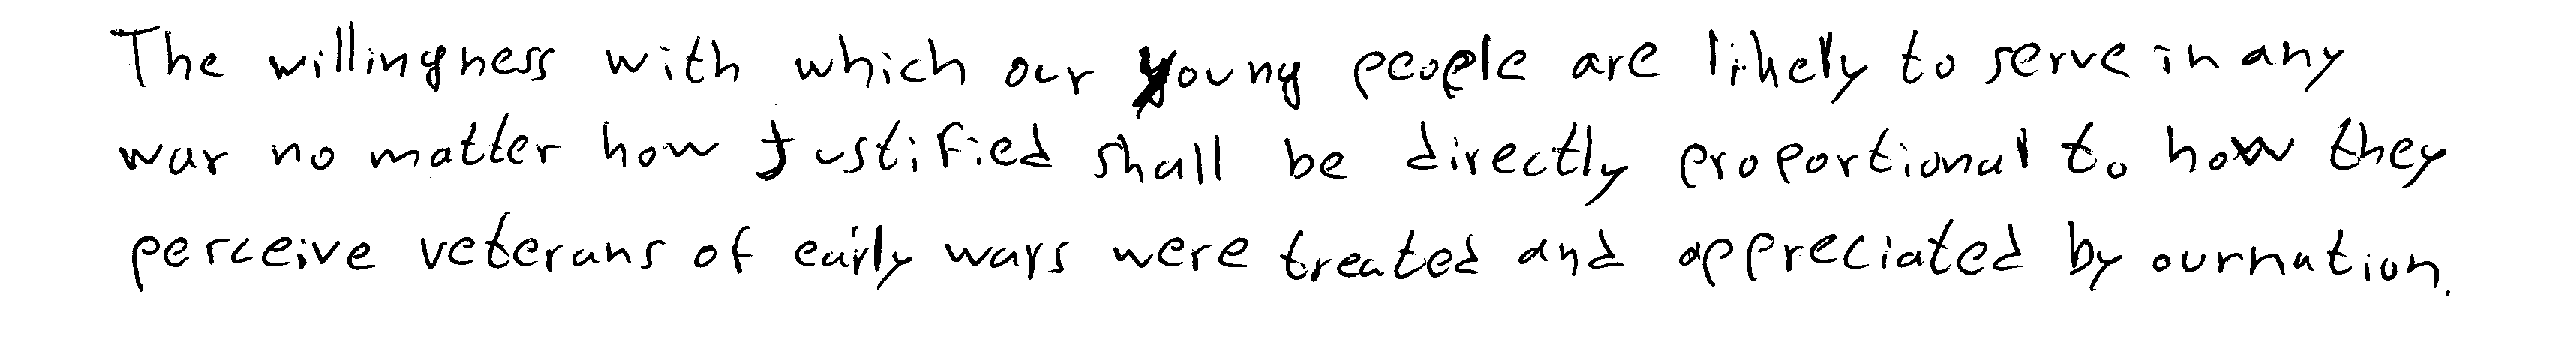 The willingness with which our young people are likely to serve in any
war no matter how justified shall be directly proportional to how they
perceive veterans of early wars were treated and appreciated by our nation.